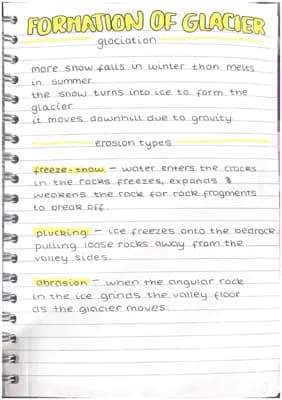 FORMATION OF GLACIER
glaciation
more snow falls in winter than melts
in summer
the snow turns into ice to form the
glacier.
it moves downhill due to gravity.
erosion types
freeze-thaw - water enters the cracks
in the rocks freezes, expands &
weakens the rock for rock fragments
to break off.
plucking - ice freezes onto the bedrock
pulling loose rocks away from the
valley sides.
abrasion - when the angular rock
in the ice grinds the valley floor
as the glacier moves.